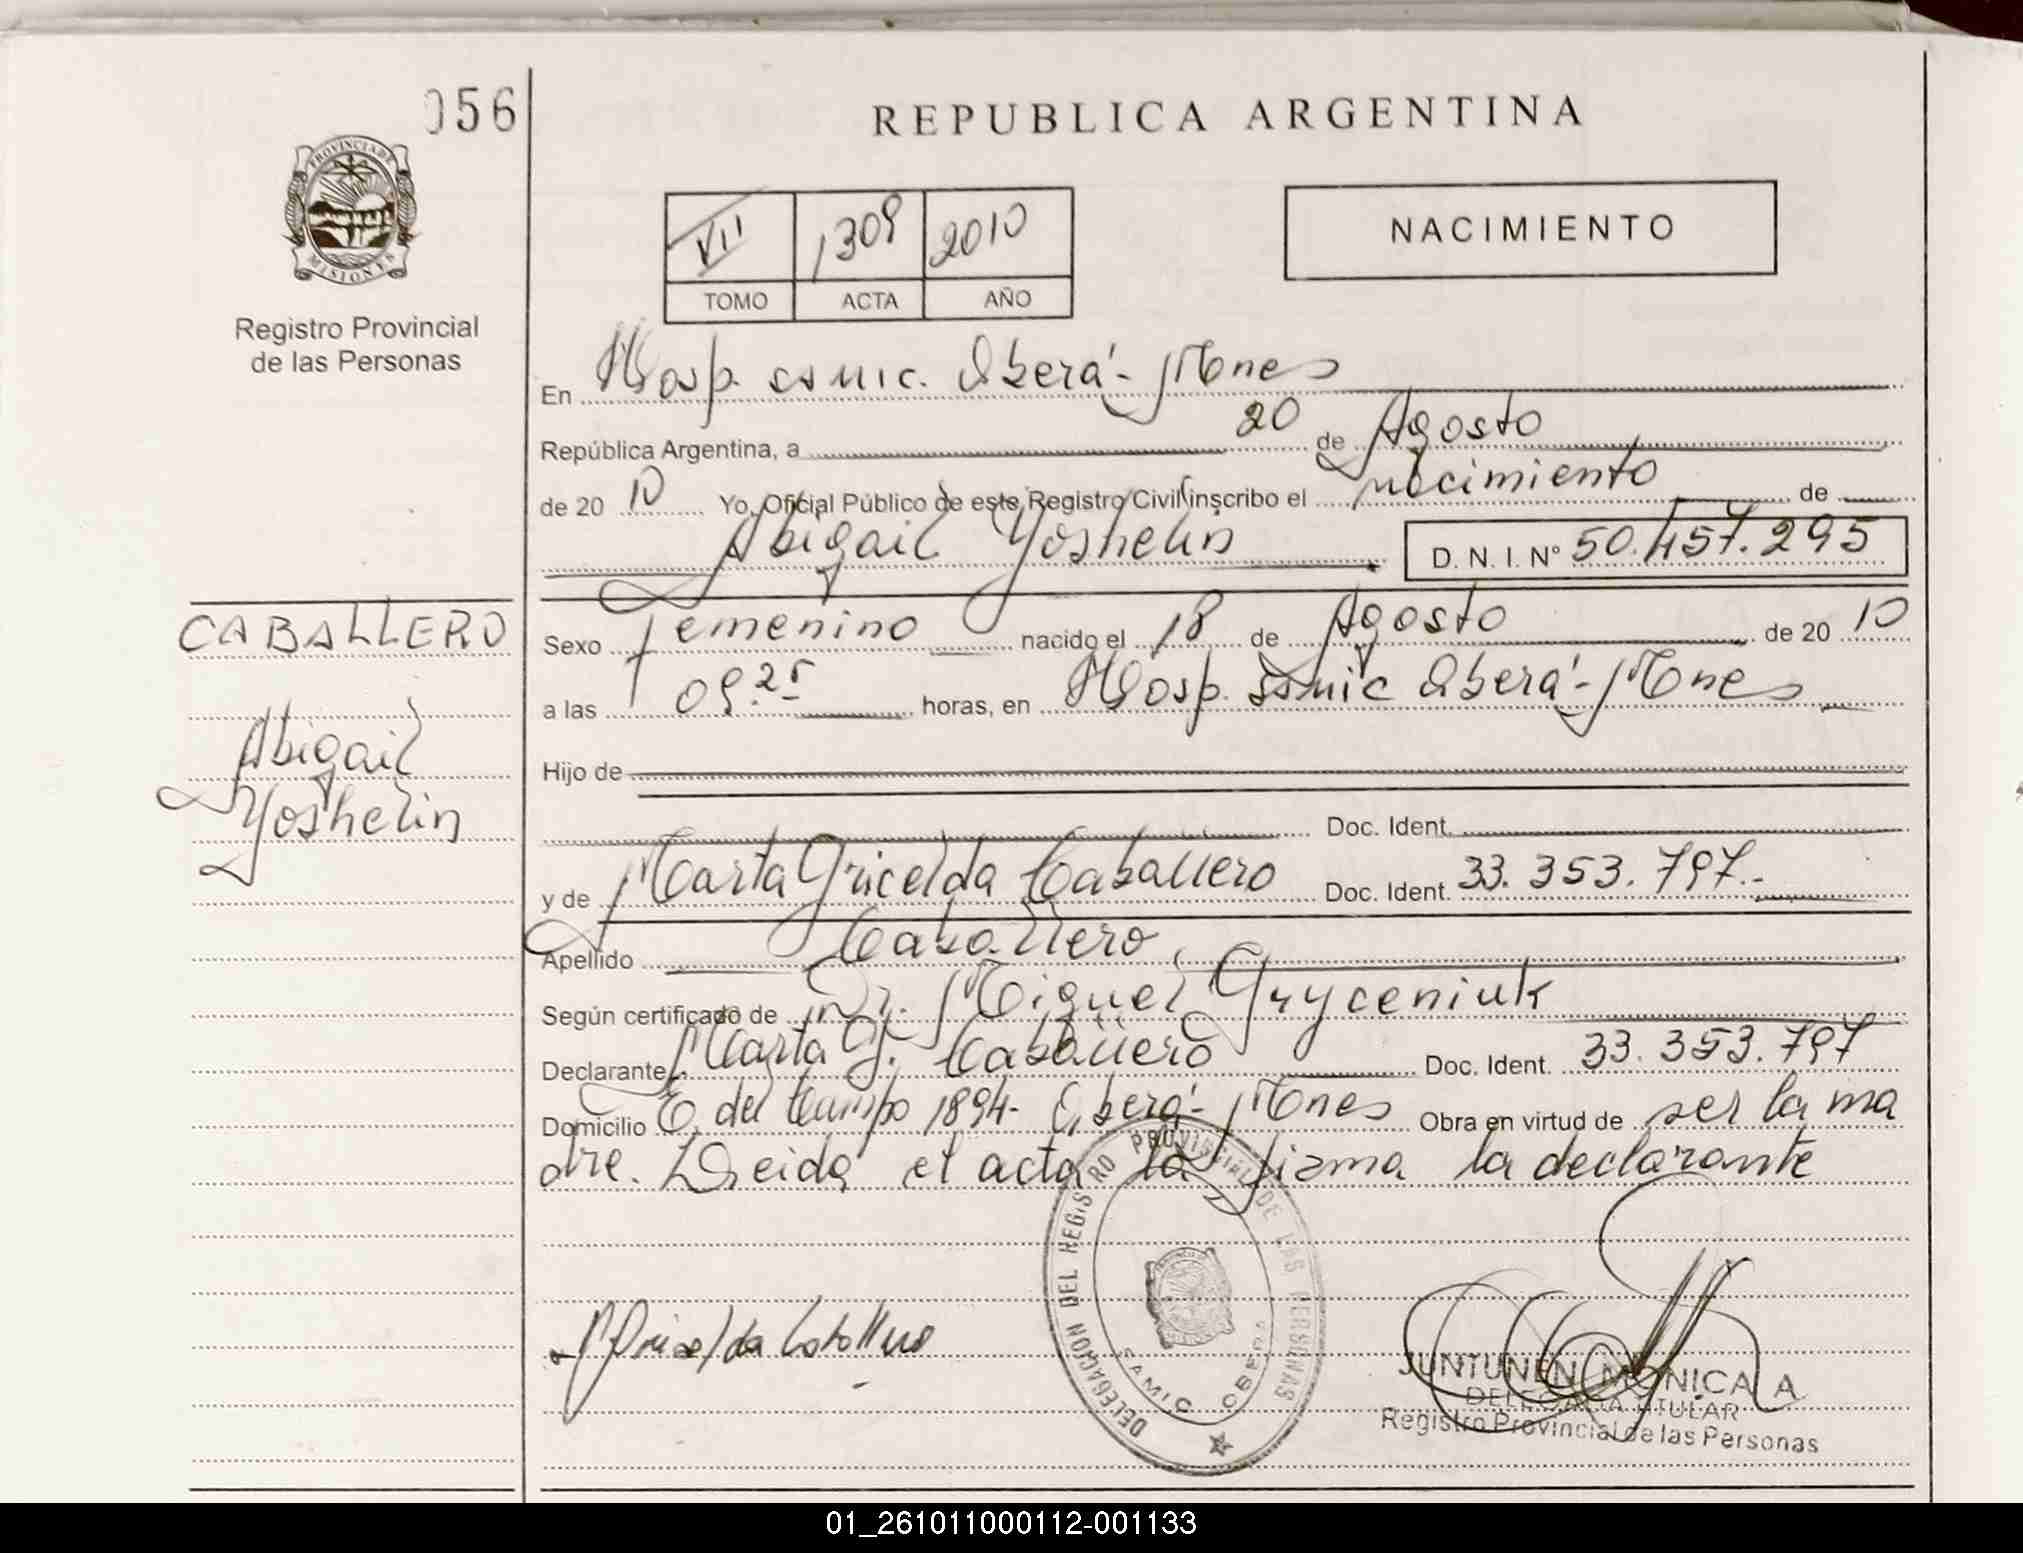 056
REPUBLICA ARGENTINA
PROVINCIA DE
MISIONES
Registro Provincial
de las Personas
VII 1309 2010
TOMO ACTA AÑO
NACIMIENTO
En Hosp. Samic. Oberá - Mnes
República Argentina, a 20 de Agosto
de 2010 Yo, Oficial Público de este Registro Civil inscribo el nacimiento de
Abigail Yoshelin D. N. I. N° 50.457.295
CABALLERO
Abigail
Yoshelin
Sexo femenino nacido el 18 de Agosto de 2010
a las 09.25 horas, en Hosp. Samic Oberá - Mnes
Hijo de
Doc. Ident.
y de Marta Gricelda Caballero Doc. Ident. 33.353.797.-
Apellido Caballero
Según certificado de Dr. Miguel Gryceniuk
Declarante Marta G. Caballero Doc. Ident. 33.353.797
Domicilio del Campo 1894 - Oberá - Mnes Obra en virtud de ser la ma
dre. Leida el acta la firma la declarante
DELEGACION DEL REGISTRO PROVINCIAL DE LAS PERSONAS
SAMIC OBERA
Griselda Caballero
JUNTUNEN MONICA A
DELEGADA TITULAR
Registro Provincial de las Personas
01_261011000112-001133